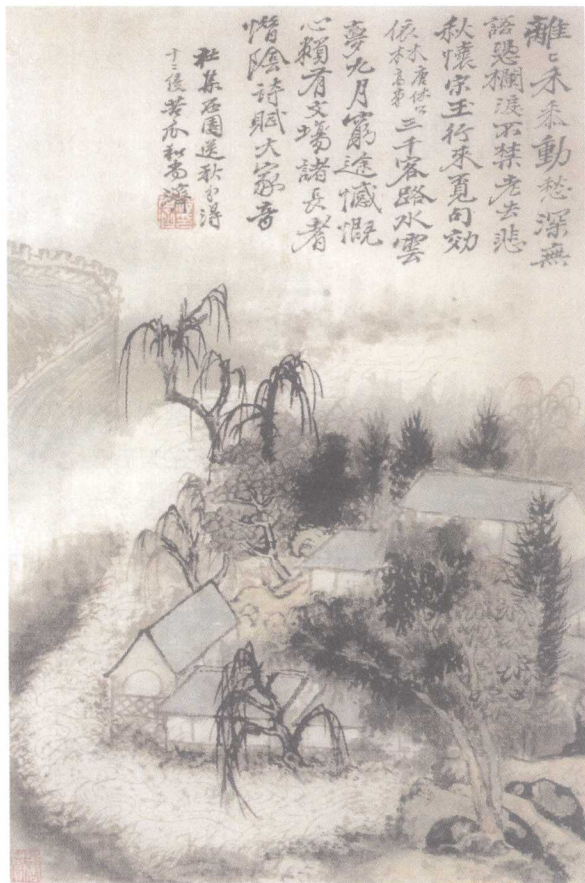 離〻禾黍動愁深無
語憑欄淚不禁老去悲
秋懷宋玉行來覓句効
三千客路水雲
夢九月窮途憾慨
心賴有文場諸長者
惜陰詩賦大家音
社集石園送秋分得
十二侵苦瓜和尚濟